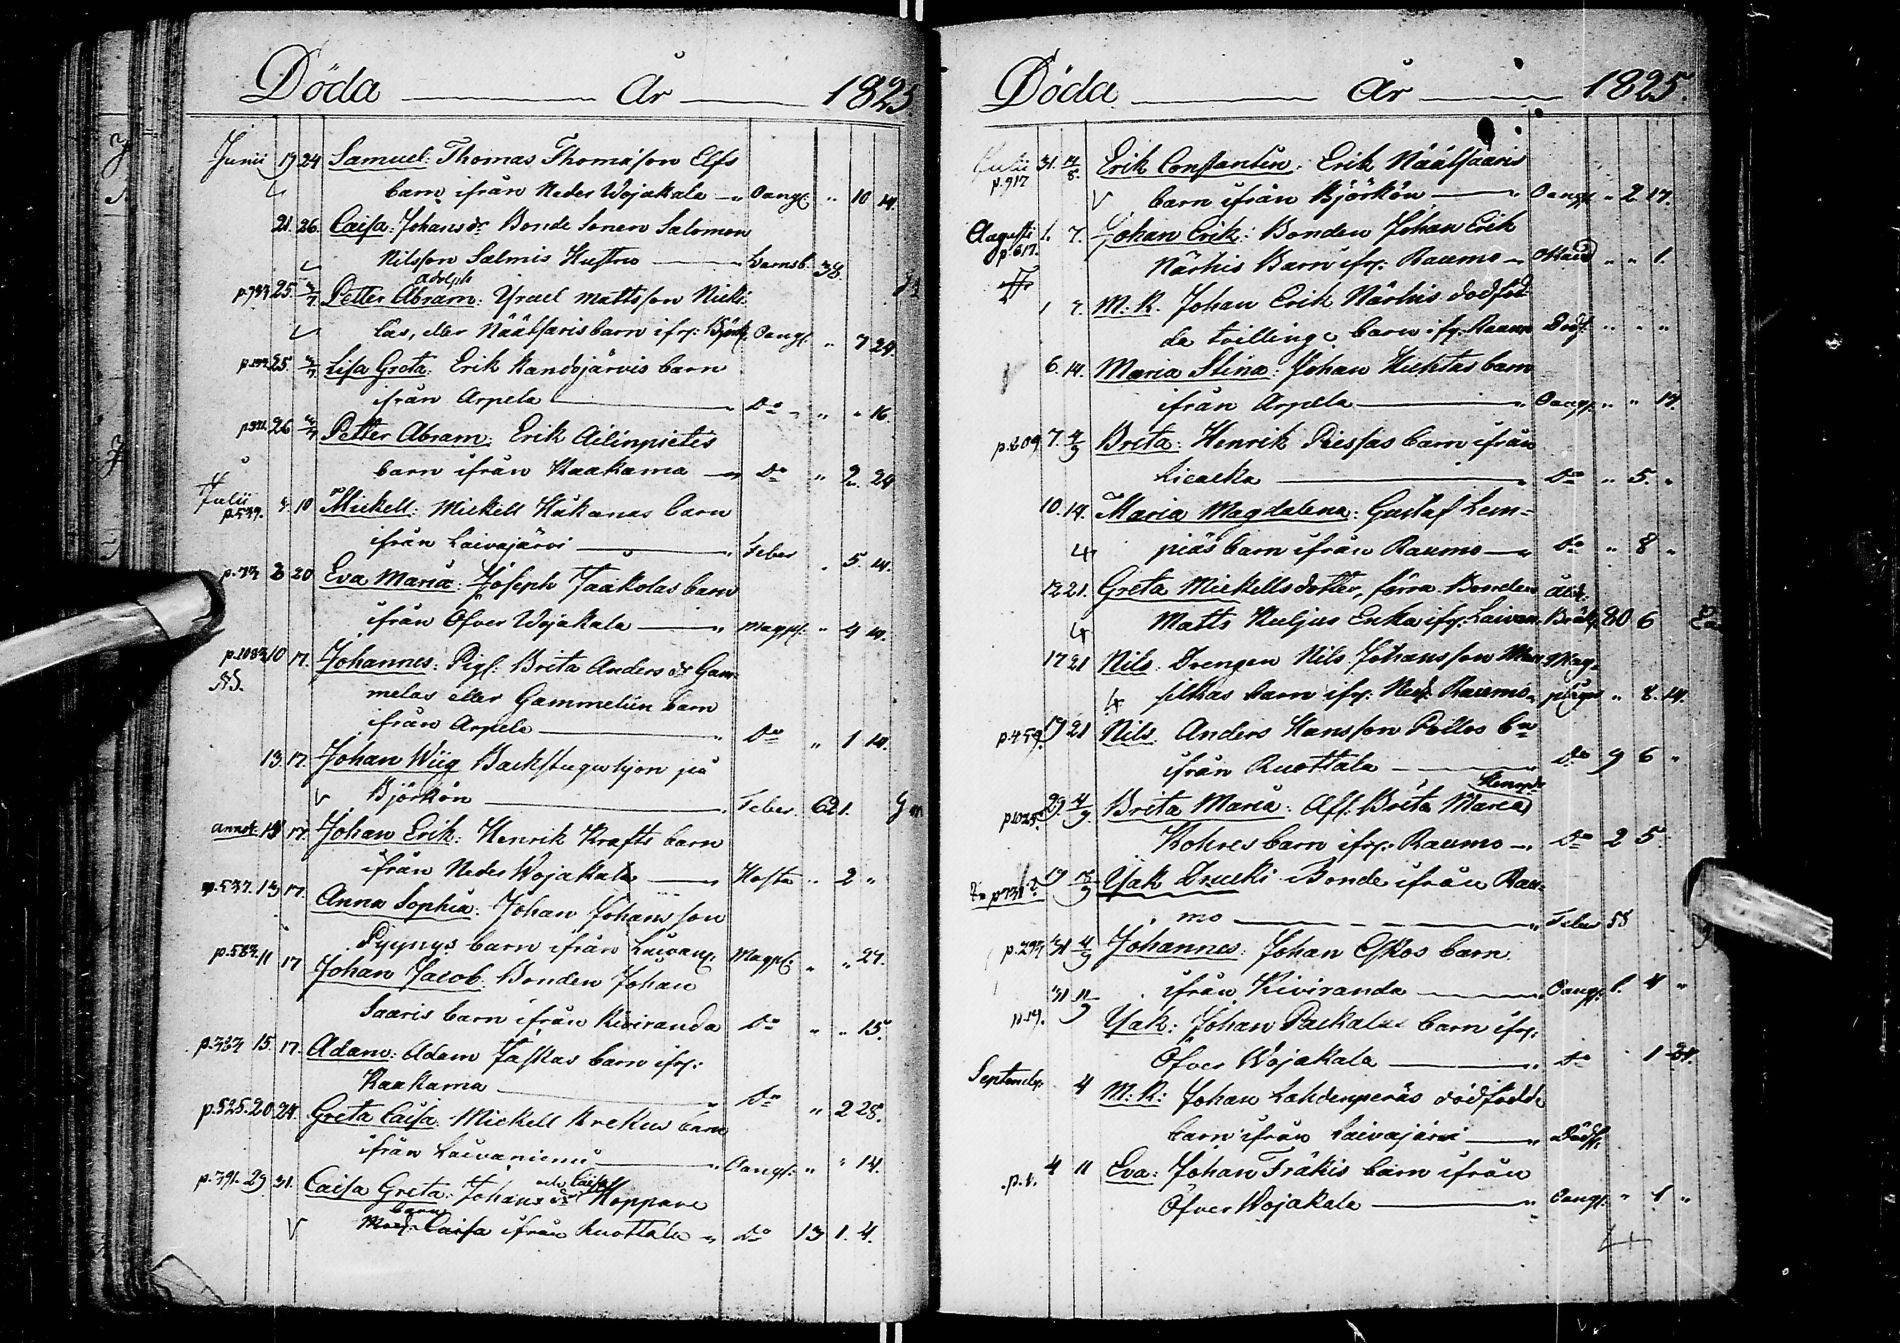 Döda År 1825
Junii 19 24 Samuel: Thomas Thomasson Elfs
barn ifrån Neder Wojakala Oang. " 10 14.
21. 26. Caisa: Johansdr Bonde Sonen Salomon
Nilsson Salmis Hustru Barnsb. 38.
Adolph
25. 3/7 Petter Abram: Israel Mattsson Nick
las, eller Näätsaris barn ifr: Björk. Oang. " 7 24.
25. 3/7 Lisa Greta: Erik Kandojärvis barn
ifrån Arpela Do " " 16.
26 3/7 Petter Abram: Erik Ailinpietis
barn ifrån Kaakama Do " 2. 24
Julii
p.539. 10 Mickell: Mickell Hakanas barn
ifrån Laivajärvi Feber " 5 14.
p.73 3 20 Eva Maria: Joseph Jaakolas barn
ifrån Öfver Wojakala Magpl. " 4 14.
10 17. Johannes: Pig. Brita Anders dr Gam-
melas eller Gammelin barn
ifrån Arpela Do " 1 14.
13. 17. Johan Wiig Backstugusyon på
Björkön Feber. 62 1.
17. Johan Erik: Henrik Krafts barn
ifrån Neder Wojakala Hosta " 2 "
p.537. 13 17. Anna Sophia: Johan Johansson
Pyynys barn ifrån Laivany. Magpl. " " 27.
p.583. 11 17 Johan Jacob: Bonden Johan
Saaris barn ifrån Kiviranda Do " " 15.
15. 17. Adam: Adam Taskas barn ifr:
Kaakama Do " 2 28.
p.525. 20. 24. Greta Caisa: Mickell Krekus barn
ifrån Laivaniemi Oang. " " 14.
p.791. 29 31. Caisa Greta: Johans dr Hoppare
barn Caisa ifrån Ruottala Do 13 1. 4.
Döda År 1825.
Julii p.917 31. 4/8. Erik Constantin: Erik Näätsaaris
barn ifrån Björkön Oang. " 2 17.
Augusti 1. 7. Johan Erik: Bonden Johan Erik
p.617. Närhis Barn ifr: Raumo " " 1.
1 7. M: K. Johan Erik Närhis dödföd
da tvillinge barn ifr: Raumo Dödf. " " "
6. 14. Maria Stina: Johan Huhtas barn
ifrån Arpela Oang. " " 17.
p.809 7. 4/9 Brita: Henrik Piessas barn ifrån
Liedakka Do " 5. "
10. 14. Maria Magdalena: Gustaf Lem=
piäs barn ifrån Raumo Do " 8 "
12 21. Greta Mickellsdotter, förra Bonden
Matts Kuljus Enka ifr: Laivan. 80 6
17 21 Nils: Drengen Nils Johansson
barn ifr: Ned. Raumo plågor " 8. 14.
p.459 19 21 Nils: Anders Hansson Pellos bn
ifrån Ruottala Do 9 6 "
p.1025. 29. 4/9 Brita Maria: Afl. Brita Maria Henrsdr
Kohres barn ifr: Raumo Do 2 5.
Isak Drucki Bonde ifrån Rau-
mo Feber 58
31 4/9 Johannes: Johan Eskos barn
ifrån Kiviranda Oang. 1. 4 "
p.19. 31 11/9 Isak: Johan Paekalas barn ifr:
Öfver Wojakala Do 1 24.
Septembr. 4 M: K: Johan Lahdenperäs dödfödde
barn ifrån Laivajärvi Dödf.
p.1. 4 11 Eva: Johan Träkis barn ifrån
Öfver Wojakala Oang. " 1 "